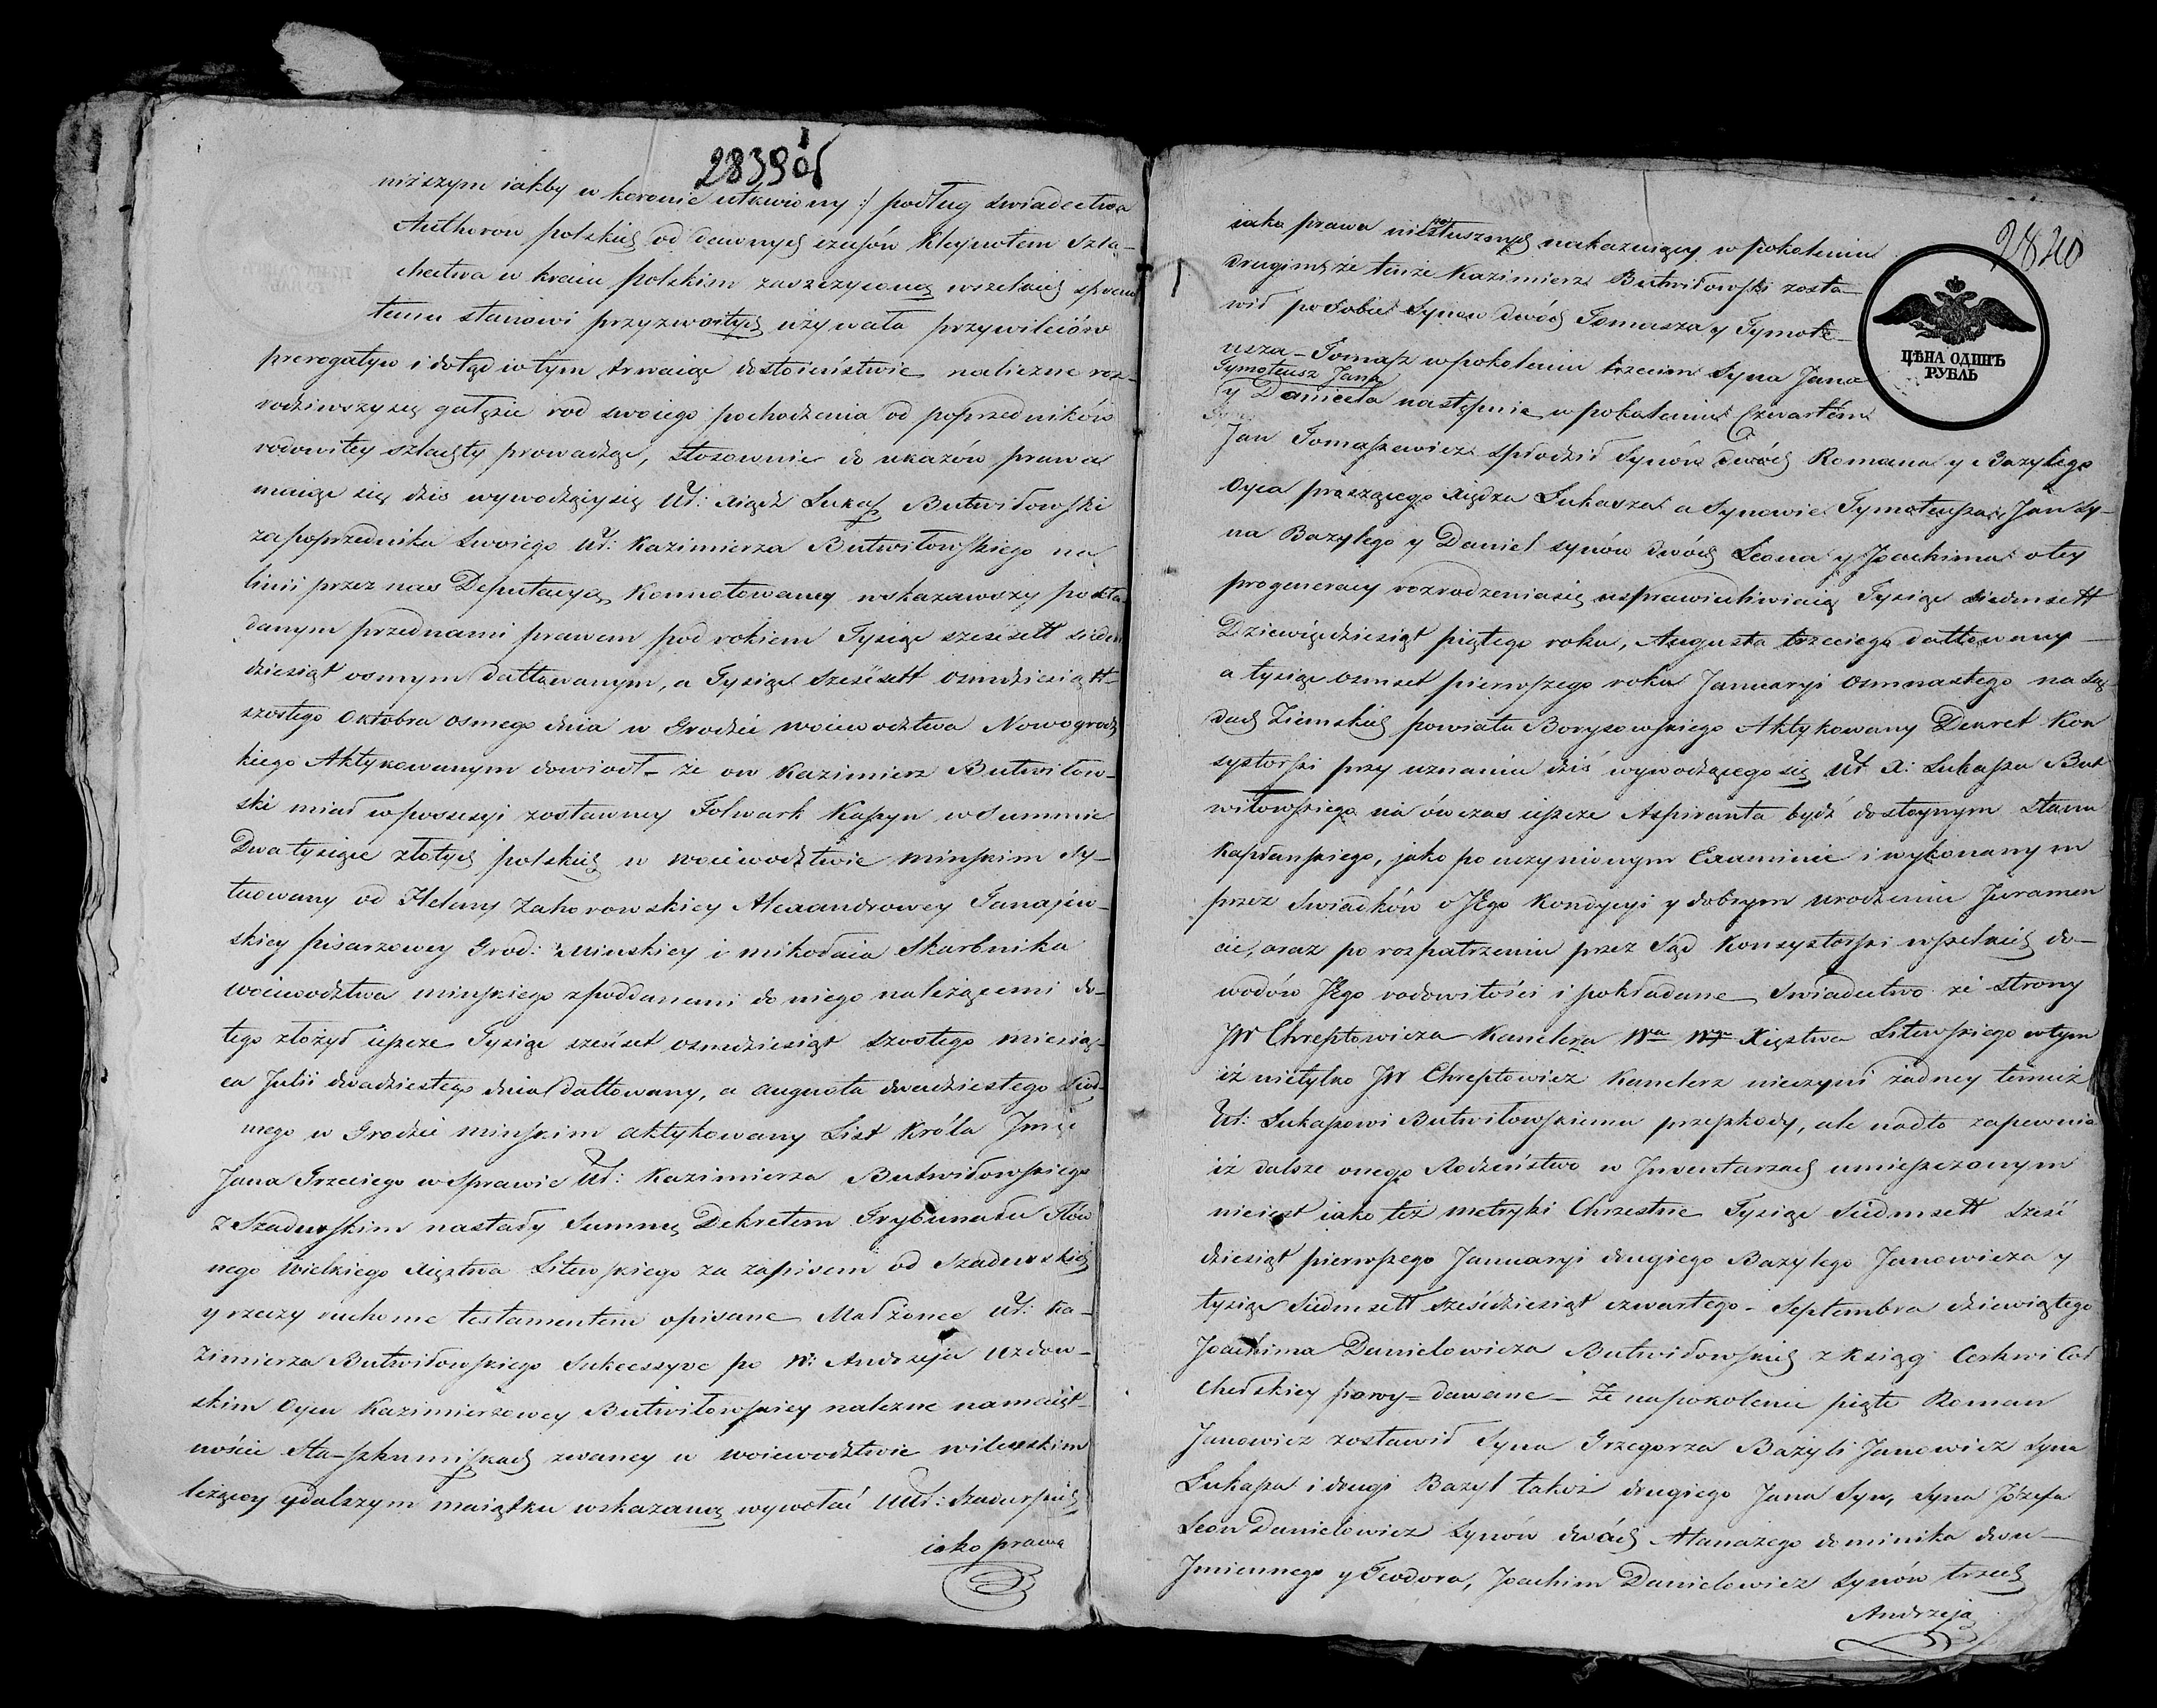 2839 об
niższym iakby w koronie utkwiony :/ podług swiadectwa
Authorow polskich od dawnych czasów kleynotem szla-
chectwa w kraiu polskim zaszczycona wszelkich
temu stanowi przyzwoitych używała przywileiów
prerogatyw i dotąd w tym trwaiąc dostoieństwie na liczne roz-
rodziwszy się gałęzie rod swoiego pochodzenia od poprzedników
rodowitey szlachty prowadzą, stosownie do ukazów prawa
maiąc się dziś wywodzący się Ur: xiądz Łukasz Butwiłowski
za poprzednika swoiego Ur: Kazimierza Butwiłowskiego na
linii przez nas Deputacyą Konnotowaney wskazawszy pokła-
danym przed nami prawem pod rokiem Tysiąc szesćsett siedm
dziesiąt osmym dattowanym, a Tysiąc szesćsett osmdziesiątt
szostego Oktobra osmego dnia w Grodzie woiewodztwa Nowogrodz
kiego Aktykowanym dowiodł – że ow Kazimierz Butwiłow-
ski miał w possesyi zostawney Folwark Kapyn w summie
Dwa tysiące złotych polskich w woiewodztwie minskim sy-
tuowany od Heleny Zahorowskiey Alexandrowey
skiey pisarzowey Grod: Minskiey i mikołaia Skarbnika
woiewodztwa minskiego z poddanemi do niego należącemi do-
tego złożył ieszcze Tysiąc sześćset osmdziesiąt szostego miesią-
ca Julii dwadziestego dnia dattowany, a augusta dwudziestego siod-
mego w Grodzie minskim aktykowany List Króla Jmći
Jana Trzeciego w sprawie Ur: Kazimierza Butwiłowskiego
z Szadurskim nastały Summę Dekretem Trybunału Głów
nego Wielkiego xięstwa Litewskiego za zapisem od Szadurskich
y rzeczy ruchome testamentem opisane Małżonce Ur: Ka-
zimierza Butwiłowskiego Sukcessyve po W: Andrzeju Uzdow-
skim Oycu Kazimierzowey Butwiłowskiey należne na maięt-
ności zwaney w woiewodztwie wilenskim
leżącey y dalszym maiątku wskazaną wywołać UUr: Szadurskich
iako prawa
2840
ЦѢНА ОДИНЪ
РУБЛЬ
iako prawu nieposłusznych nakazuiący w pokoleniu
drugim że tenże Kazimierz Butwiłowski zosta-
wił po sobie Synow dwóch Tomasza y Tymote-
usza – Tomasz w pokoleniu trzecim Syna Jana
Tymoteusz Jana
y Daniela następnie w pokoleniu Czwartém
Jan Tomaszewicz spłodził Synów dwóch Romana y Bazylego
Oyca proszącego xiędza Łukasza a Synowie Tymoteusza Jan Sy-
na Bazylego y Daniel synów dwóch Leona y Joachima o tey
progeneracyi rozrodzenia się usprawiedliwiaią Tysiąc siedmsett
Dziewiędziesiąt piątego roku, Augusta trzeciego dattowany
a tysiąc osmset pierwszego roku Januaryi osmnastego na Są-
dach Ziemskich powiatu Borysowskiego Aktykowany Dekret Kon
systorski przy uznaniu dziś wywodzącego się Ur X: Łukasza But
wiłowskiego na ówczas ieszcze Aspiranta bydź dostoynym stanu
Kapłanskiego, jako po uczynionym Examinie i wykonanym
przez swiadków o Jego kondycyi y dobrym urodzeniu Juramen
cie, oraz po rozpatrzeniu przez Sąd Konsystorski wszelkich do-
wodów Jego rodowitości i pokładane swiadectwo ze strony
JW Chreptowicza Kanclerza Wa Wgo Xięstwa Litewskiego w tym
iż nietylko JW Chreptowicz Kanclerz nieczyni żadney temuż
Ur: Łukaszowi Butwiłowskiemu przeszkody, ale nadto zapewnia
iż dalsze onego Rodzeństwo w Jnwentarzach umieszczonym
nieiest iako też metryki Chrzestne Tysiąc Siedmsett sześć
dziesiąt pierwszego Januaryi drugiego Bazylego Janowicza y
tysiąc siedmsett sześćdziesiąt czwartego – Septembra dziewiątego
Joachima Danielowicza Butwiłowskich z ksiąg Cerkwi
powy=dawane – Że na pokolenie piąte Roman
Janowicz zostawił Syna Grzegorza Bazyli Janowicz syna
Łukasza i drugi Bazyl takoż drugiego Jana Syn, syna Józefa
Leon Danielowicz synów dwóch Atanazego dominika dwu-
Jmiennego y Teodora, Joachim Danielowicz synów trzech
Andrzeja